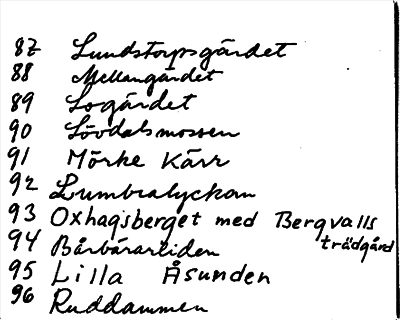 87 Lundstorpsgärdet
88 Mellangärdet
89 Logärdet
90 Lövdalsmossen
91 Mörke Kärr
92 Lumbralyckan
93 Oxhagsberget med Bergvalls trädgård
94 Bårbärarliden
95 Lilla Åsunden
96 Ruddammen